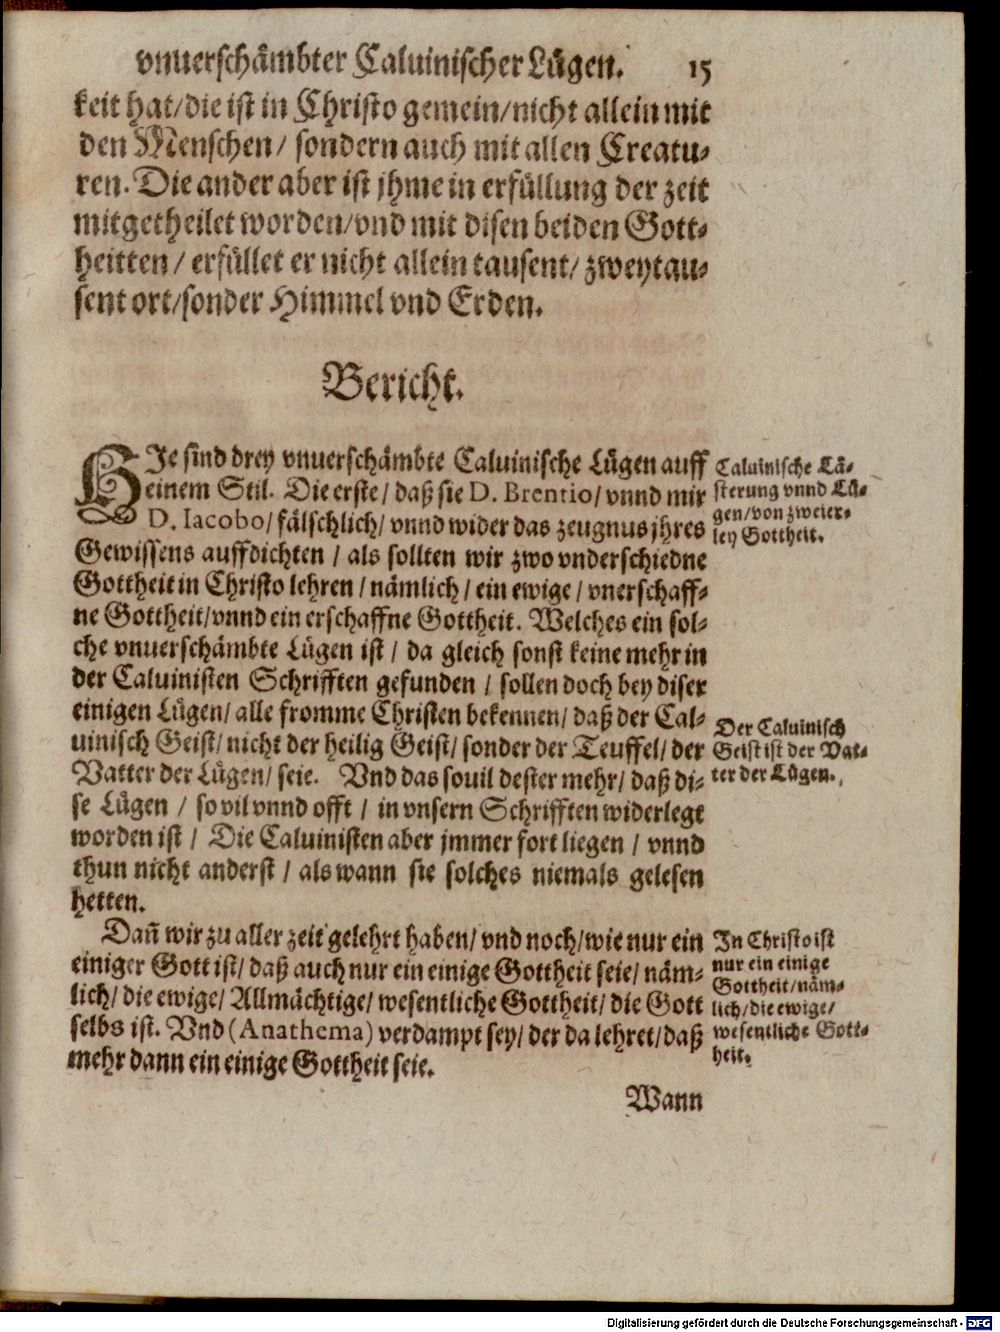 vnuerschämbter Caluinischer Lügen. 15
keit hat/die ist in Christo gemein/nicht allein mit
den Menschen/ sondern auch mit allen Creatu-
ren. Die ander aber ist jhme in erfüllung der zeit
mitgetheilet worden/vnd mit disen beiden Gott-
heitten/ erfüllet er nicht allein tausent/ zweytau-
sent ort/sonder Himmel vnd Erden.
Bericht.
HJe sind drey vnuerschämbte Caluinische Lügen auff
einem Stil. Die erste/ daß sie D. Brentio/ vnnd mir
D. Iacobo/ fälschlich/ vnnd wider das zeugnus jhres
Gewissens auffdichten/ als sollten wir zwo vnderschiedne
Gottheit in Christo lehren/ nämlich/ ein ewige/ vnerschaff-
ne Gottheit/vnnd ein erschaffne Gottheit. Welches ein sol-
che vnuerschämbte Lügen ist/ da gleich sonst keine mehr in
der Caluinisten Schrifften gefunden/ sollen doch bey diser
einigen Lügen/ alle fromme Christen bekennen/ daß der Cal-
uinisch Geist/ nicht der heilig Geist/ sonder der Teuffel/ der
Vatter der Lügen/ seie. Vnd das souil dester mehr/ daß di-
se Lügen/ so vil vnnd offt/ in vnsern Schrifften widerlegt
worden ist/ Die Caluinisten aber jmmer fort liegen/ vnnd
thun nicht anderst/ als wann sie solches niemals gelesen
hetten.
Dañ wir zu aller zeit gelehrt haben/ vnd noch/ wie nur ein
einiger Gott ist/ daß auch nur ein einige Gottheit seie/ näm-
lich/ die ewige/ Allmächtige/ wesentliche Gottheit/ die Gott
selbs ist. Vnd (Anathema) verdampt sey/ der da lehret/ daß
mehr dann ein einige Gottheit seie.
Wann
Caluinische Lä-
sterung vnnd Lü-
gen/von zweier-
ley Gottheit.
Der Caluinisch
Geist ist der Vat-
ter der Lügen.
In Christo ist
nur ein einige
Gottheit/näm-
lich/die ewige/
wesentliche Gott-
heit.
Digitalisierung gefördert durch die Deutsche Forschungsgemeinschaft - DFG